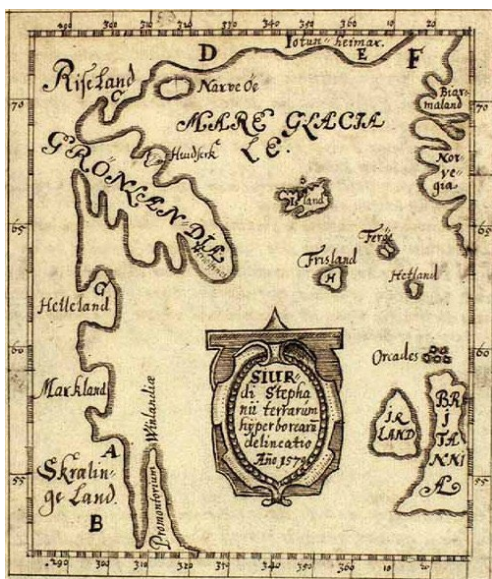 310 320 330 340 350 360 10 20
D
Iotun heimar.
E
F
Riseland
C
Narve Oe
70
70
Biar
maland
MARE GLACIA
LE.
Huidserk
GRONLANDIA
Nor
ve
gia
Island
65
65
Feroe
Frisland
H
Hetland
Helleland
G
60
60
Orcades
Markland
SIUR
di Stepha
nii terrarum
hyperborearū
delineatio
Año 1570
IR
LAND
BR
I
TA
NNI
A
A
Skralin=
ge Land.
B
Promontorium Winlandiæ
55
55
290 300 310 320 330 340 350 360 10 20